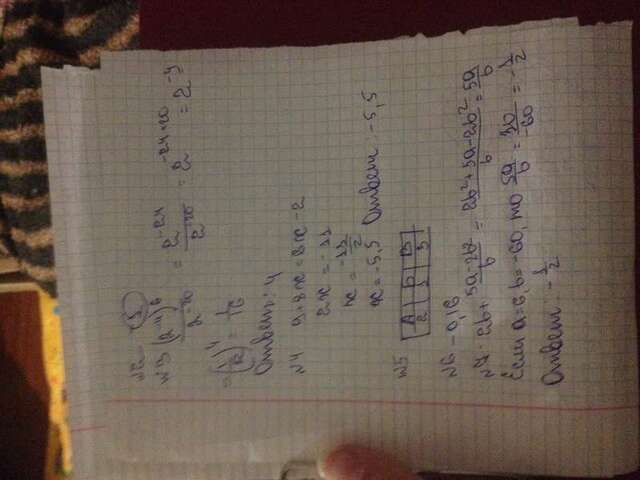 №2 5
№3 (2⁻⁴)⁶/2⁻²⁰ = 2⁻²⁴/2⁻²⁰ = 2⁻²⁴⁺²⁰ = 2⁻⁴ =
= (1/2)⁴ = 1/16
Ответ: 4
№4 9+8x=6x-2
2x = -11
x = -11/2
x = -5,5 Ответ -5,5
№5 А Б В
2 1 3
№6 -0,16
№7. 2b + 5a-2b²/b = 2b²+5a-2b²/b = 5a/b
Если a=6, b= -60, то 5a/b = 30/-60 = -1/2
Ответ. -1/2